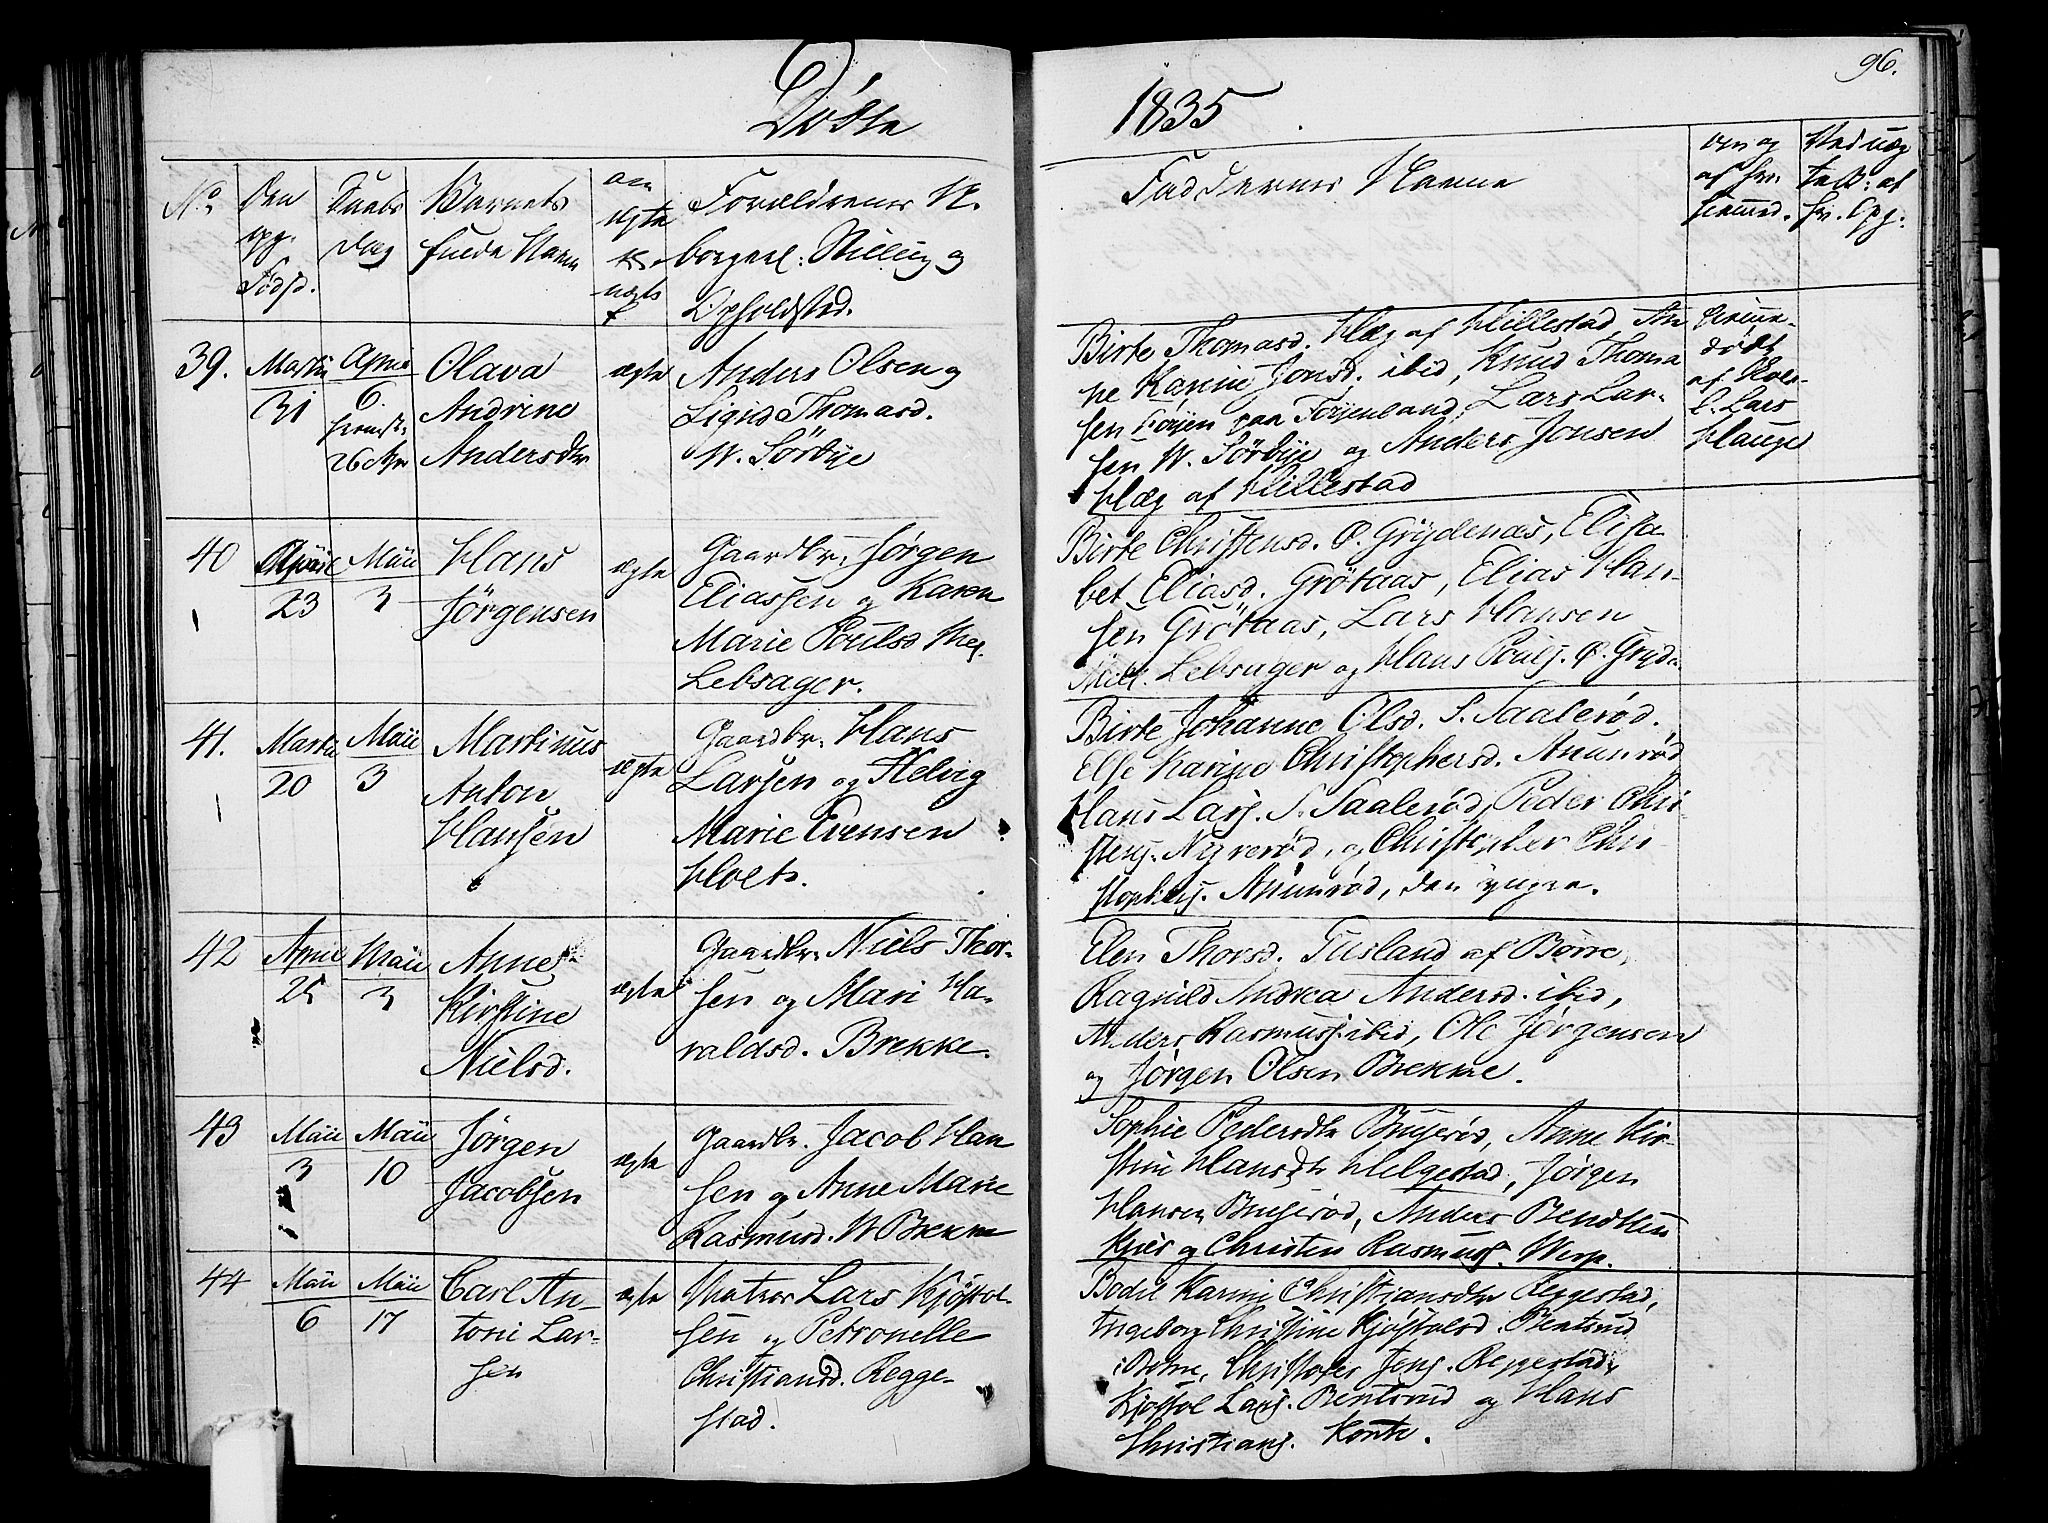 Döbte
1835
96.
No.
Den
Daabs
Barnets
om
Forældrenes N.
Faddernes Navne
Om og
Ved uæg
Dag
fulde Navn
ægte
borgerl: Stilling og
Fødsl.
Opholdsted.
39.
Martii
31
April
6
hiemd.
26 Apr
Olava
Andrine
Andersdtr
ægte
Anders Olsen og
Sigrid Thomasd.
N. Sörbye
Birte Thomasd. Hæg af Hillestad, An
ne Karine Jonsd. ibid, Knud Thoma
sen Foÿen paa Foÿenland, Lars Lar-
sen N. Sörbye og Anders Jonsen
Hæg af Hillestad
hiemme-
döbt
af
Lars
Hauge
40
April
23
Maii
3
Hans
Jörgensen
ægte
Gaardbr. Jørgen
Eliassen og Karen
Marie Poulsd
Lebsager.
Birte Christensd. Ø. Grÿdenæs, Elisa
bet Eliasd. Grötaas, Elias Han-
sen Grötaas, Lars Hansen
Lebsager og Hans Pouls. Ø. Gryde
41.
Martii
20
Maii
3
Martinus
Anton
Hansen
ægte
Gaardbr. Hans
Larsen og Helvig
Marie Evensen
Holts.
Birte Johanne Olsd. S. Saalerød.
Else Karine Christophersd. Anunrød
Hans Lars. S. Saalerød, Peder Chri
stens. Nyrerød, og Christopher Chri
stophers. Anunrød, den yngre.
42
April
25
Maii
3
Anne
Kirstine
Nielsd.
ægte
Gaardbr. Niels Thor-
sen og Mari Ha-
raldsd. Brekke.
Elen Thorsd. Tusland af Borre,
Ragnild Andrea Andersd. ibid,
Anders Rasmuss. ibid, Ole Jørgensen
og Jørgen Olsen Brekke.
43
Maii
3
Maii
10
Jørgen
Jacobsen
ægte
Gaardbr. Jacob Han
sen og Anne Marie
Rasmusd. N Brekke
Sophie Pedersdtr Bugerød, Anne Kir-
stine Hansdtr Helgestad, Jörgen
Hansen Bugerød, Anders Bendtsen
Kjær og Christen Rasmuss. Werp.
44
Maii
6
Maii
17
Carl An-
toni Lar-
sen
ægte
Matros Lars Kjøstol-
sen og Petronelle
Christiansd. Regge-
stad.
Bodil Karine Christiansdtr Reggestad,
Ingeborg Christine Kjøstolsd. Bentsrud
i Botne, Christofer Jens. Reggestad,
Kjøstol Lars. Bentsrud og Hans
Christians. Korte.